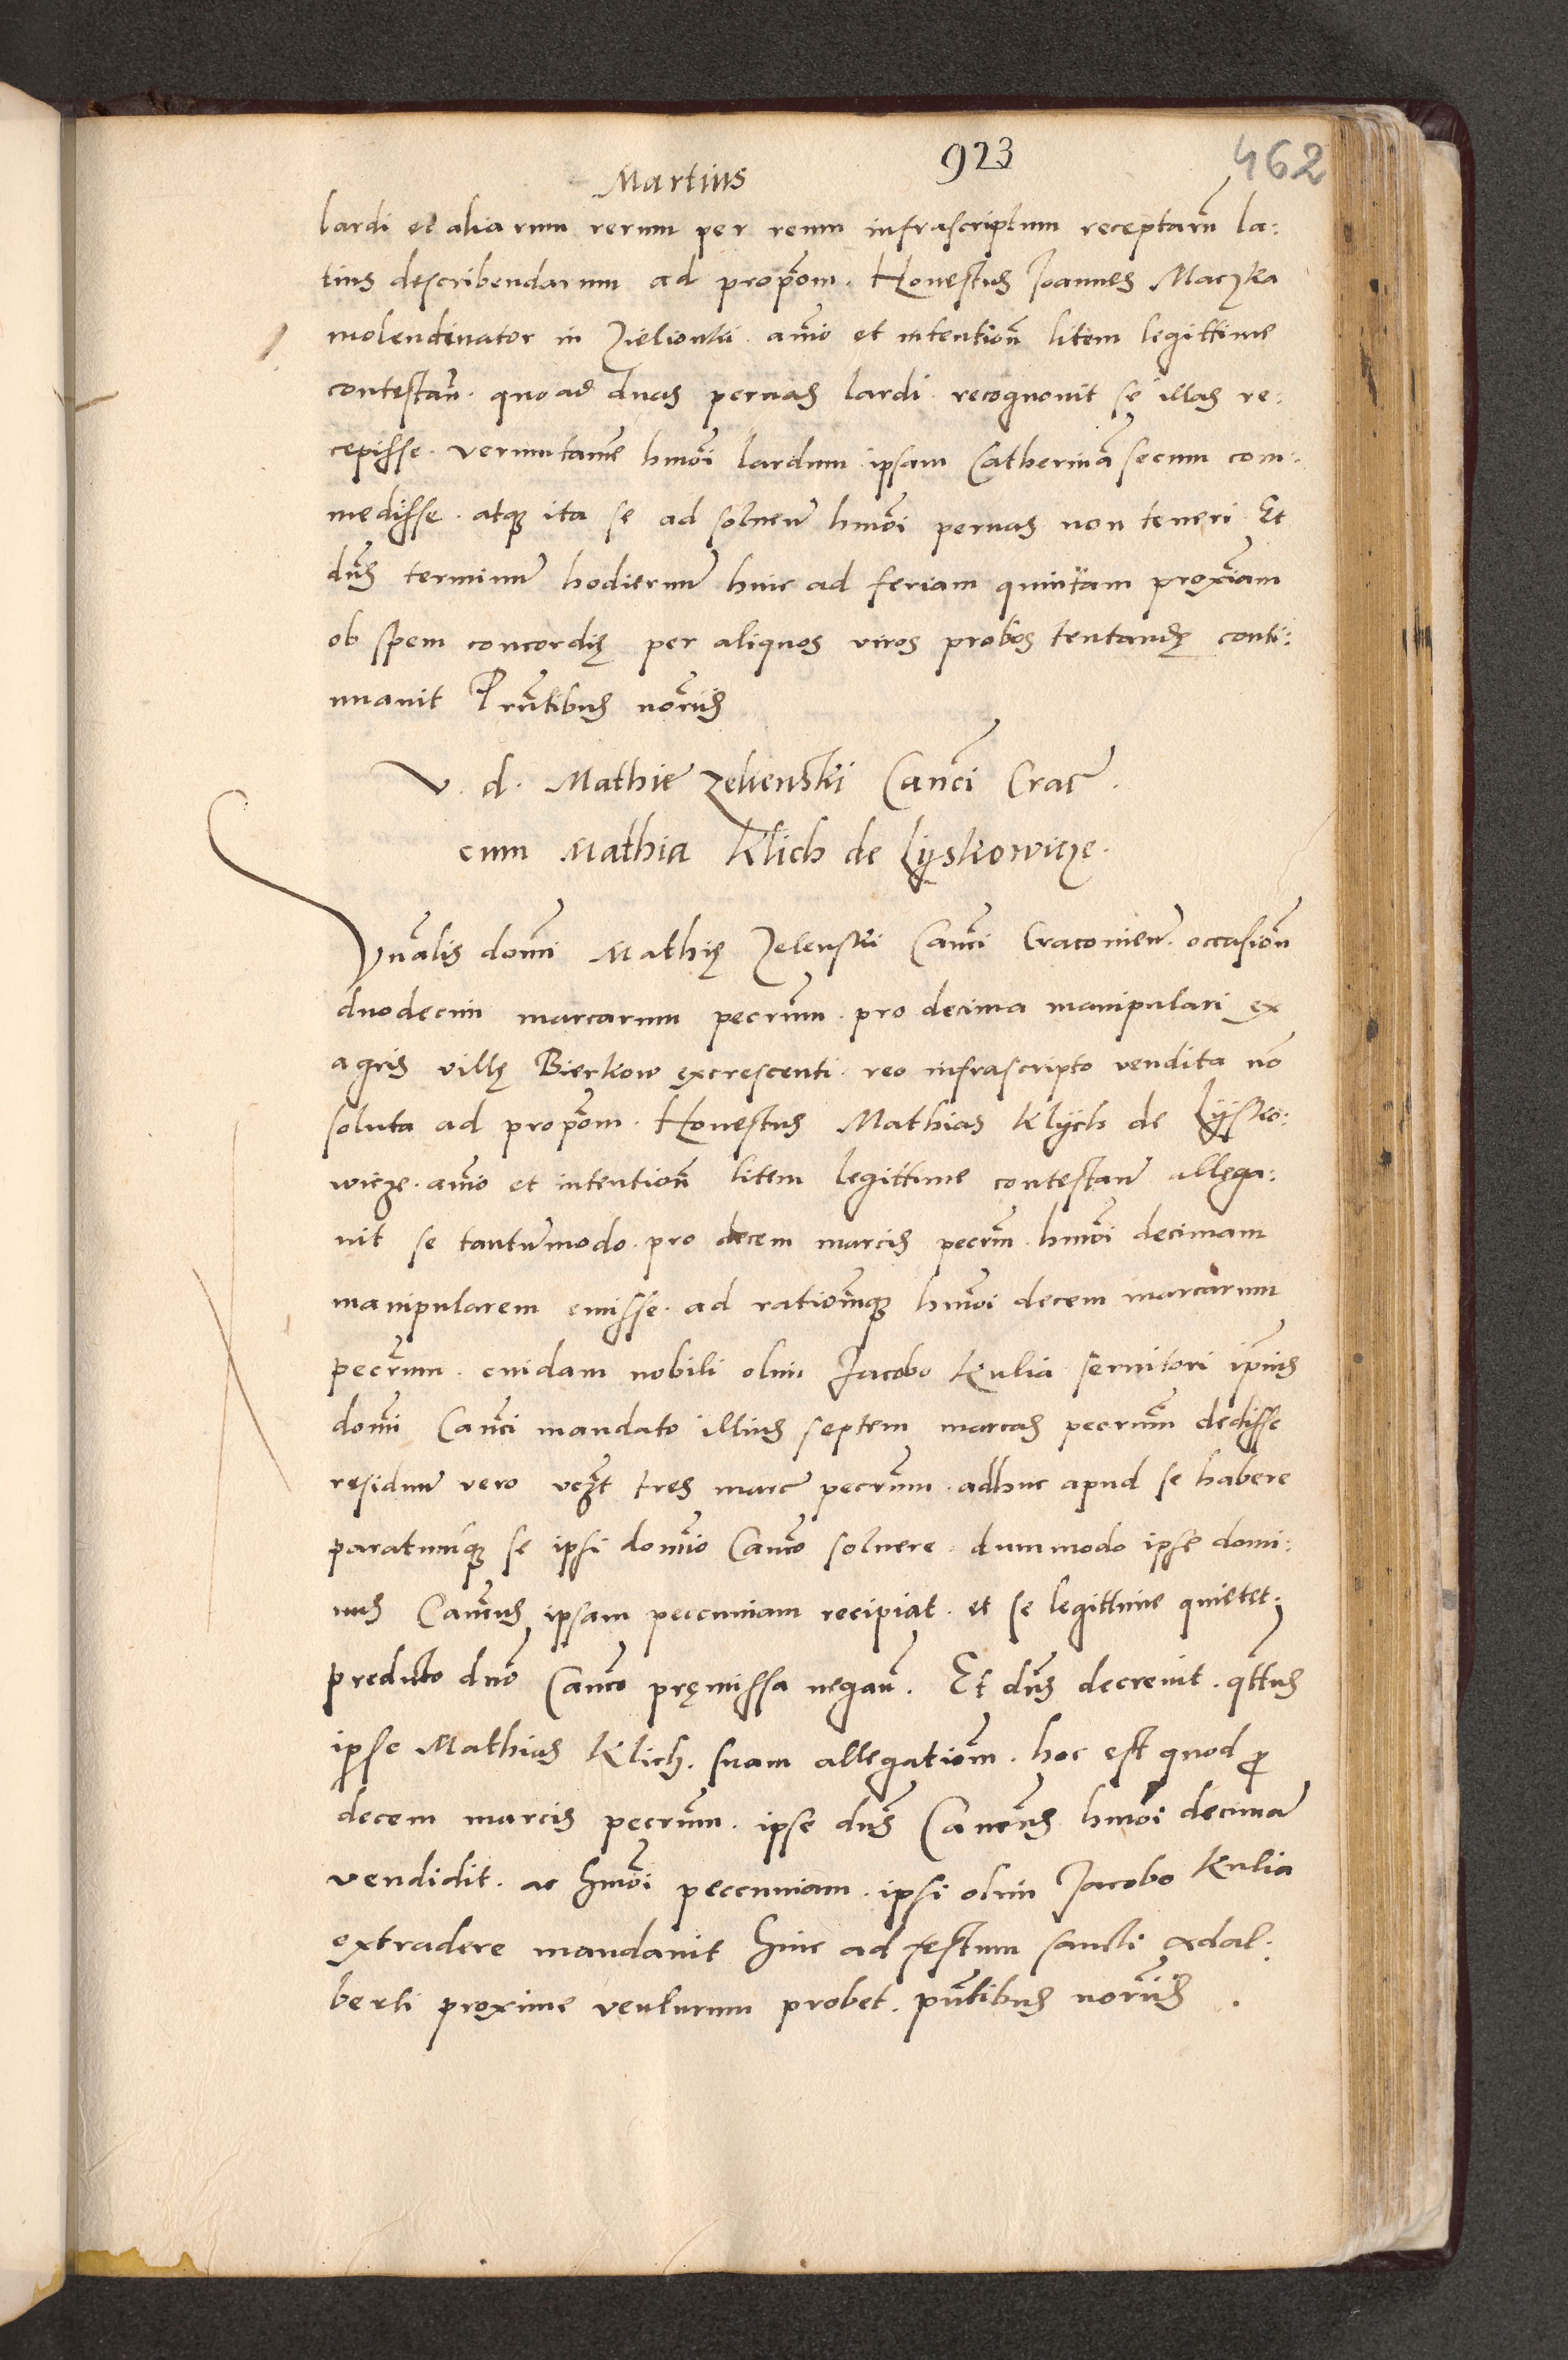 923
462
Martius
lardi et aliarum rerum per reum infrascriptum receptarũ la:
tius describendarum ad propõm. Honestus Joannes Maczka
molendinator in Zielionki aĩo et intentiõn litem legittime
contestañ. quoad duas pernas lardi recognouit se illas re:
cepisse. verumtamẽ hmõi lardum ipsam Catherinã secum com:
medisse. atq3 ita se ad soluenũ hmõi pernas non teneri Et
dñs terminũ hodiernũ hinc ad feriam quintam proxĩam
ob spem concordię per aliquos viros probos tentandę conti:
nuauit Pñtibus norijs
V. d. Mathię Zelienski Canci Crac.
cum Mathia Klich de Lyskowicze.
Vñalis domĩ Mathię Zelenski Canci Cracouieñ. occasiõn
duodecim marcarum pecñum. pro decima manipulari ex
agris villę Bierkow excrescenti. reo infrascripto vendita nõ
soluta ad propõm. Honestus Mathias Klych de Lysko:
wicze. aĩo et intentiõn litem legittime contestañ allega:
uit se tantũmodo. pro decem marcis pecñm hmõi decimam
manipularem emisse. ad ratiõmq3 hmõi decem marcarum
pecñum. cuidam nobili olim Jacobo Kulia seruitori ipsius
domĩ Canci mandato illius septem marcas pecñum dedisse
residuũ vero vczt tres marc pecñum. adhuc apud se habere
paratumq3 se ipsi domĩo Canco soluere. dummodo ipse domi:
nus Cancus ipsam peccuniam recipiat. et se legittime quietet.
predicto dño Canco pręmissa negañ. Et dñs decreuit. qttus
ipse Mathias Klich. suam allegatiõm. hoc est quod p
decem marcis pecñum. ipse dñs Cancus hmõi decimã
vendidit. ac hmõi peccuniam. ipsi olim Jacobo Kulia
extradere mandauit hinc ad festum sancti Adal:
berti proxime venturum probet. pñtibus norijs.